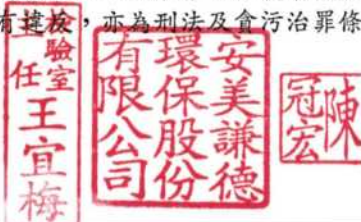 有違反,亦為刑法及貪污治罪條
檢驗室
主任王宜梅
安美謙德
環保股份
有限公司
陳冠宏